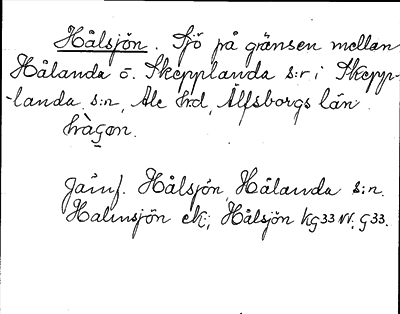 Hålsjön. Sjö på gränsen mellan
Hålanda o. Skepplanda s:r i Skepp-
-landa s:n, Ale hd, Älfsborgs län
hågøn.
Jämf. Hålsjön, Hålanda s:n.
Halmsjön ek.; Hålsjön KG33 NV. G33.